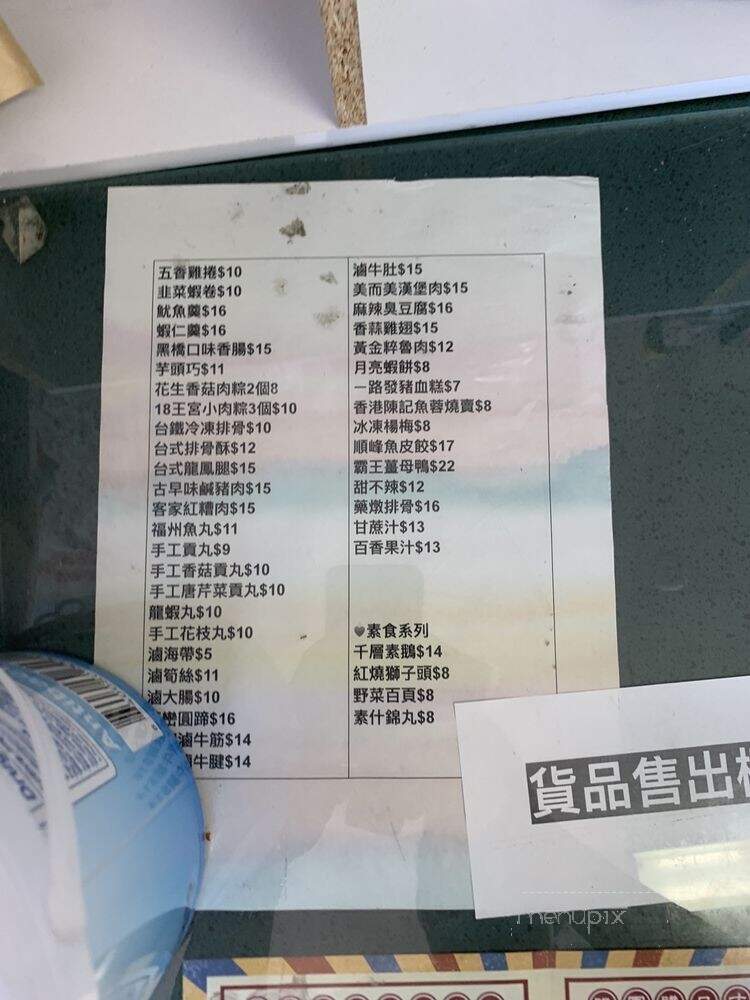 五香雞捲$10
韭菜蝦卷$10
魷魚羹$16
蝦仁羹$16
黑橋口味香腸$15
芋頭巧$11
花生香菇肉粽2個8
18王宮小肉粽3個$10
台鐵冷凍排骨$10
台式排骨酥$12
台式龍鳳腿$15
古早味鹹豬肉$15
客家紅糟肉$15
福州魚丸$11
手工貢丸$9
手工香菇貢丸$10
手工唐芹菜貢丸$10
龍蝦丸$10
手工花枝丸$10
滷海帶$5
滷筍絲$11
滷大腸$10
巒圓蹄$16
滷牛筋$14
牛腱$14
滷牛肚$15
美而美漢堡肉$15
麻辣臭豆腐$16
香蒜雞翅$15
黃金粹魯肉$12
月亮蝦餅$8
一路發豬血糕$7
香港陳記魚蓉燒賣$8
冰凍楊梅$8
順峰魚皮餃$17
霸王薑母鴨$22
甜不辣$12
藥燉排骨$16
甘蔗汁$13
百香果汁$13
♥素食系列
千層素鵝$14
紅燒獅子頭$8
野菜百頁$8
素什錦丸$8
貨品售出
menupix